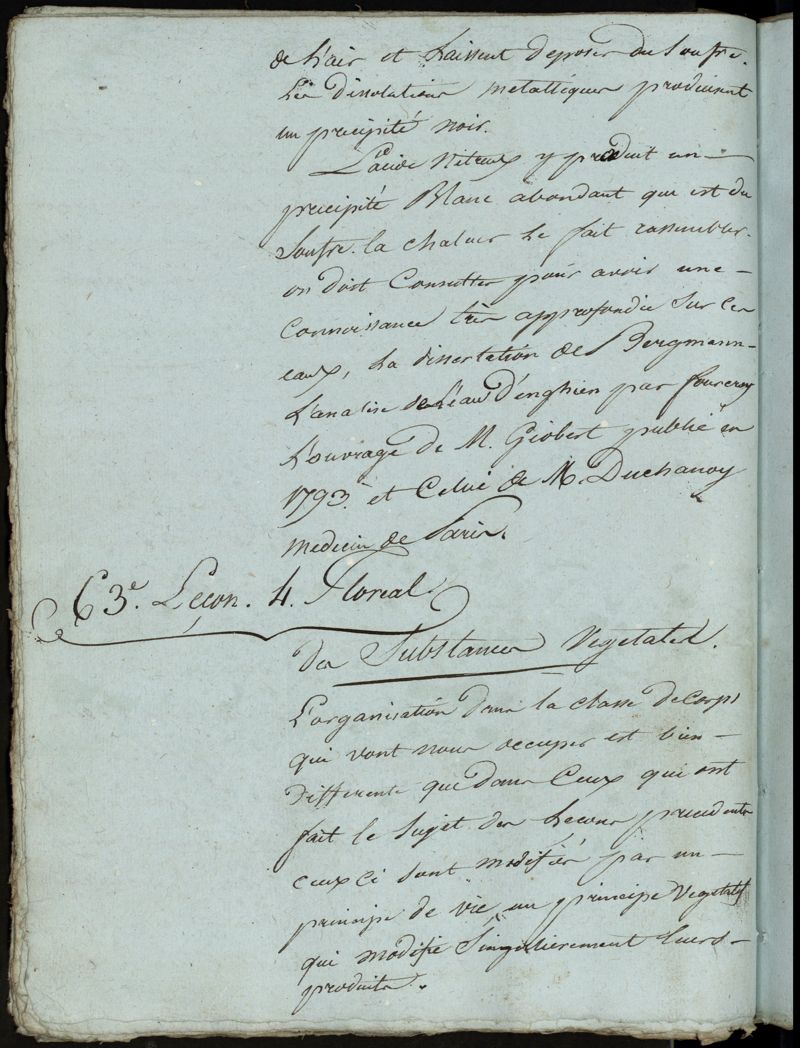 de l'air et laissent deposer du soufre.
Les dissolutions metalliques produisent
un precipité noir.
L'acide nitreux y produit un
precipité Blanc abondant qui est du
Soufre. la chaleur le fait rassembler.
on doit Consulter pour avoir une
Connoissance très approfondie sur ces
eaux, la dissertation de Bergmann
L'analise de l'eau d'enghien par fourcroy
L'ouvrage de M. Giobert publié en
1793. et Celui de M. Duchanoy
medecin de Paris.
63e. Leçon. 4. Floreal
Des Substances Vegetales.
L'organisation dans la classe de corps
qui vont nous occuper est bien
differente que dans Ceux qui ont
fait le sujet des Lecons precedentes
ceux ci sont modifiés par un
principe de vie, un principe Vegetatif
qui modifie Singulierement leurs
produits.